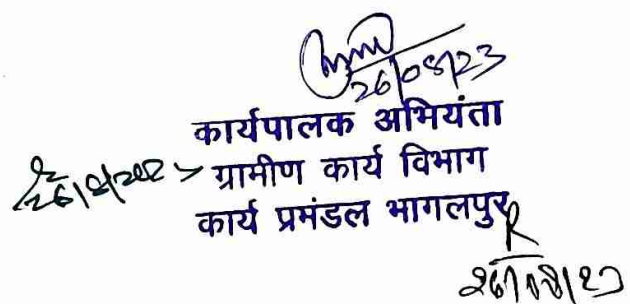 26/08/23
कार्यपालक अभियंता
ग्रामीण कार्य विभाग
कार्य प्रमंडल भागलपुर
26/08/23